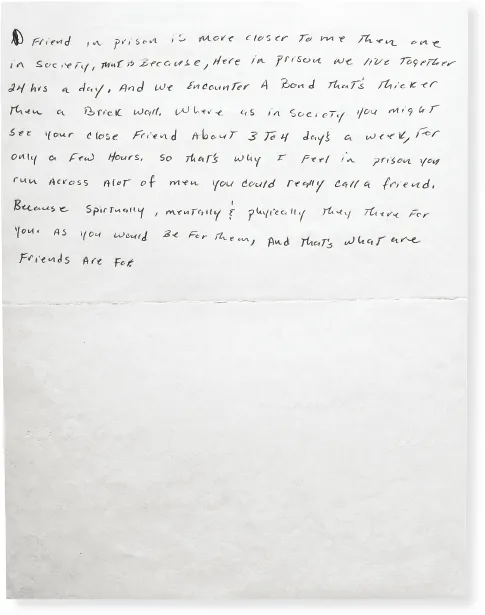 A Friend in prison is more closer To me Then one
in Society, That is Because, Here in prison we live Together
24 hrs a day, And We Encounter A Bond That's Thicker
Then a Brick wall. Where as in Society you might
See your close Friend About 3 To 4 days a week, For
only a Few Hours. So that's why I Feel in prison you
run Across Alot of men you could really call a friend.
Because Spirtually, mentally & physically They There For
you. As you would Be For Them, And That's what are
Friends Are For